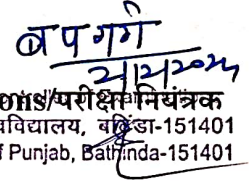 ब प गर्ग
2/12/2024
ons/परीक्षा नियंत्रक
विद्यालय, बठिंडा-151401
f Punjab, Bathinda-151401